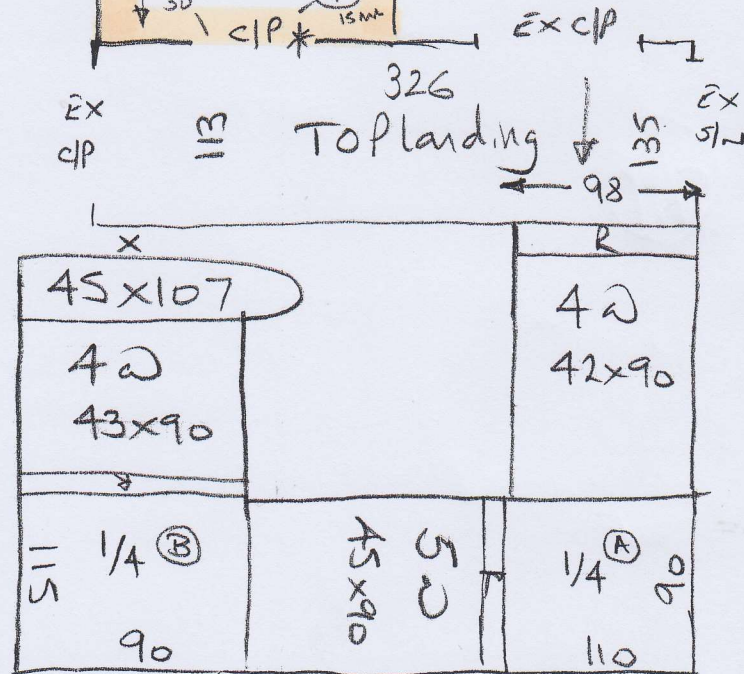 30
15mm
C/P *
EX C/P
EX
C/P
113
326
TOP landing
135
EX
98
X
R
45x107
4
42x90
4
43x90
R
115
1/4 B
90
45x90
5
1/4 A
90
110